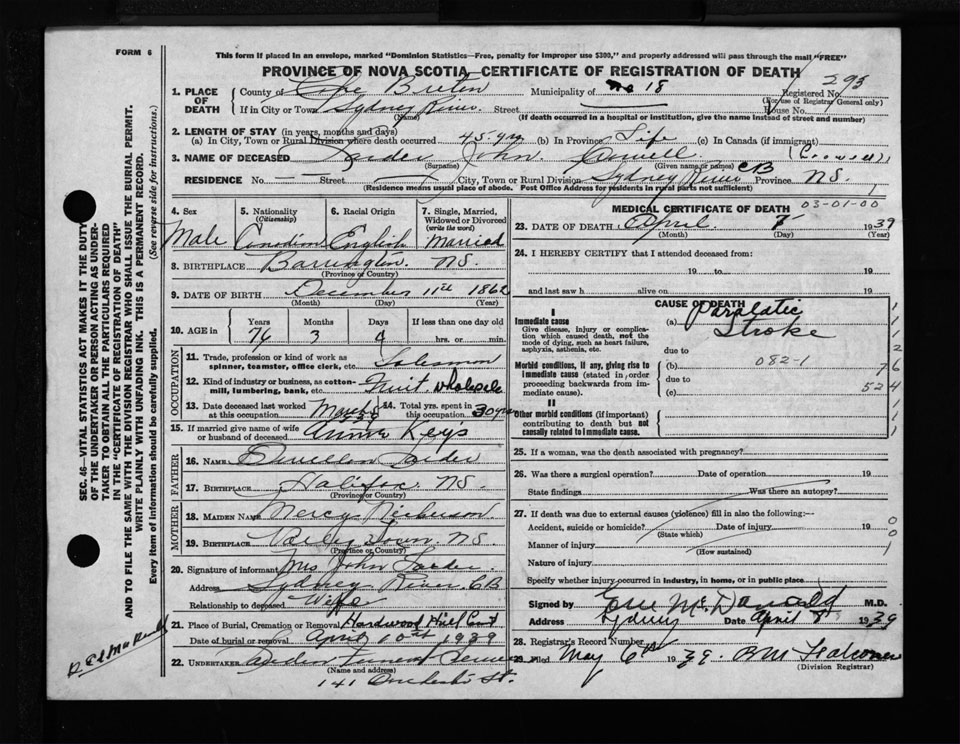 FORM 6
This form if placed in an envelope, marked "Dominion Statistics—Free, penalty for improper use $300," and properly addressed will pass through the mail "FREE"
PROVINCE OF NOVA SCOTIA—CERTIFICATE OF REGISTRATION OF DEATH
295
1. PLACE OF DEATH
County of Cape Breton Municipality of No 18 Registered No.
(For use of Registrar General only)
If in City or Town Sydney River Street House No.
(Name) (If death occurred in a hospital or institution, give the name instead of street and number)
2. LENGTH OF STAY (in years, months and days)
(a) In City, Town or Rural Division where death occurred 45 yrs (b) In Province Life (c) In Canada (if immigrant)
3. NAME OF DECEASED John
(Surname) (Given name or names)
RESIDENCE No. — Street City, Town or Rural Division Sydney River CB Province N.S.
(Residence means usual place of abode. Post Office Address for residents in rural parts not sufficient)
4. Sex
Male
5. Nationality
(Citizenship)
Canadian
6. Racial Origin
English
7. Single, Married, Widowed or Divorced
(write the word)
Married
8. BIRTHPLACE Barrington. N.S.
(Province or Country)
9. DATE OF BIRTH December 11th 1862
(Month) (Day) (Year)
10. AGE in
Years Months Days If less than one day old
76 3 hrs. or min.
OCCUPATION
11. Trade, profession or kind of work as spinner, teamster, office clerk, etc. Salesman
12. Kind of industry or business, as cotton-mill, lumbering, bank, etc. Fruit wholesale
13. Date deceased last worked at this occupation March 1939
14. Total yrs. spent in this occupation 30 yrs
15. If married give name of wife or husband of deceased Annie Keys
FATHER
16. NAME
17. BIRTHPLACE Halifax N.S.
(Province or Country)
MOTHER
18. MAIDEN NAME Mercy Nickerson
19. BIRTHPLACE Town. N.S.
(Province or Country)
20. Signature of informant Mrs John
Address Sydney River C B
Relationship to deceased Wife
21. Place of Burial, Cremation or Removal Hardwood Hill
Date of burial or removal April 10th 1939
22. UNDERTAKER
(Name and address)
141 St.
MEDICAL CERTIFICATE OF DEATH 03-01-00
23. DATE OF DEATH April 7 1939
(Month) (Day) (Year)
24. I HEREBY CERTIFY that I attended deceased from:
19 to 19
and last saw h alive on 19
CAUSE OF DEATH
I
Immediate cause
Give disease, injury or complication which caused death, not the mode of dying, such as heart failure, asphyxia, asthenia, etc.
(a) Paralatic Stroke
due to
Morbid conditions, if any, giving rise to immediate cause (stated in order proceeding backwards from immediate cause).
(b) 082-1
due to
(c)
II
Other morbid conditions (if important) contributing to death but not causally related to immediate cause.
25. If a woman, was the death associated with pregnancy?
26. Was there a surgical operation? Date of operation 19
State findings Was there an autopsy?
27. If death was due to external causes (violence) fill in also the following:—
Accident, suicide or homicide? Date of injury 19
(State which)
Manner of injury
(How sustained)
Nature of injury
Specify whether injury occurred in industry, in home, or in public place
Signed by McDonald M.D.
Address Sydney Date April 8 1939
28. Registrar's Record Number
29. Filed May 6th 1939.
(Division Registrar)
SEC. 46—VITAL STATISTICS ACT MAKES IT THE DUTY OF THE UNDERTAKER OR PERSON ACTING AS UNDERTAKER TO OBTAIN ALL THE PARTICULARS REQUIRED IN THE "CERTIFICATE OF REGISTRATION OF DEATH" AND TO FILE THE SAME WITH THE DIVISION REGISTRAR WHO SHALL ISSUE THE BURIAL PERMIT.
WRITE PLAINLY WITH UNFADING INK. THIS IS A PERMANENT RECORD.
Every item of information should be carefully supplied. (See reverse side for instructions.)